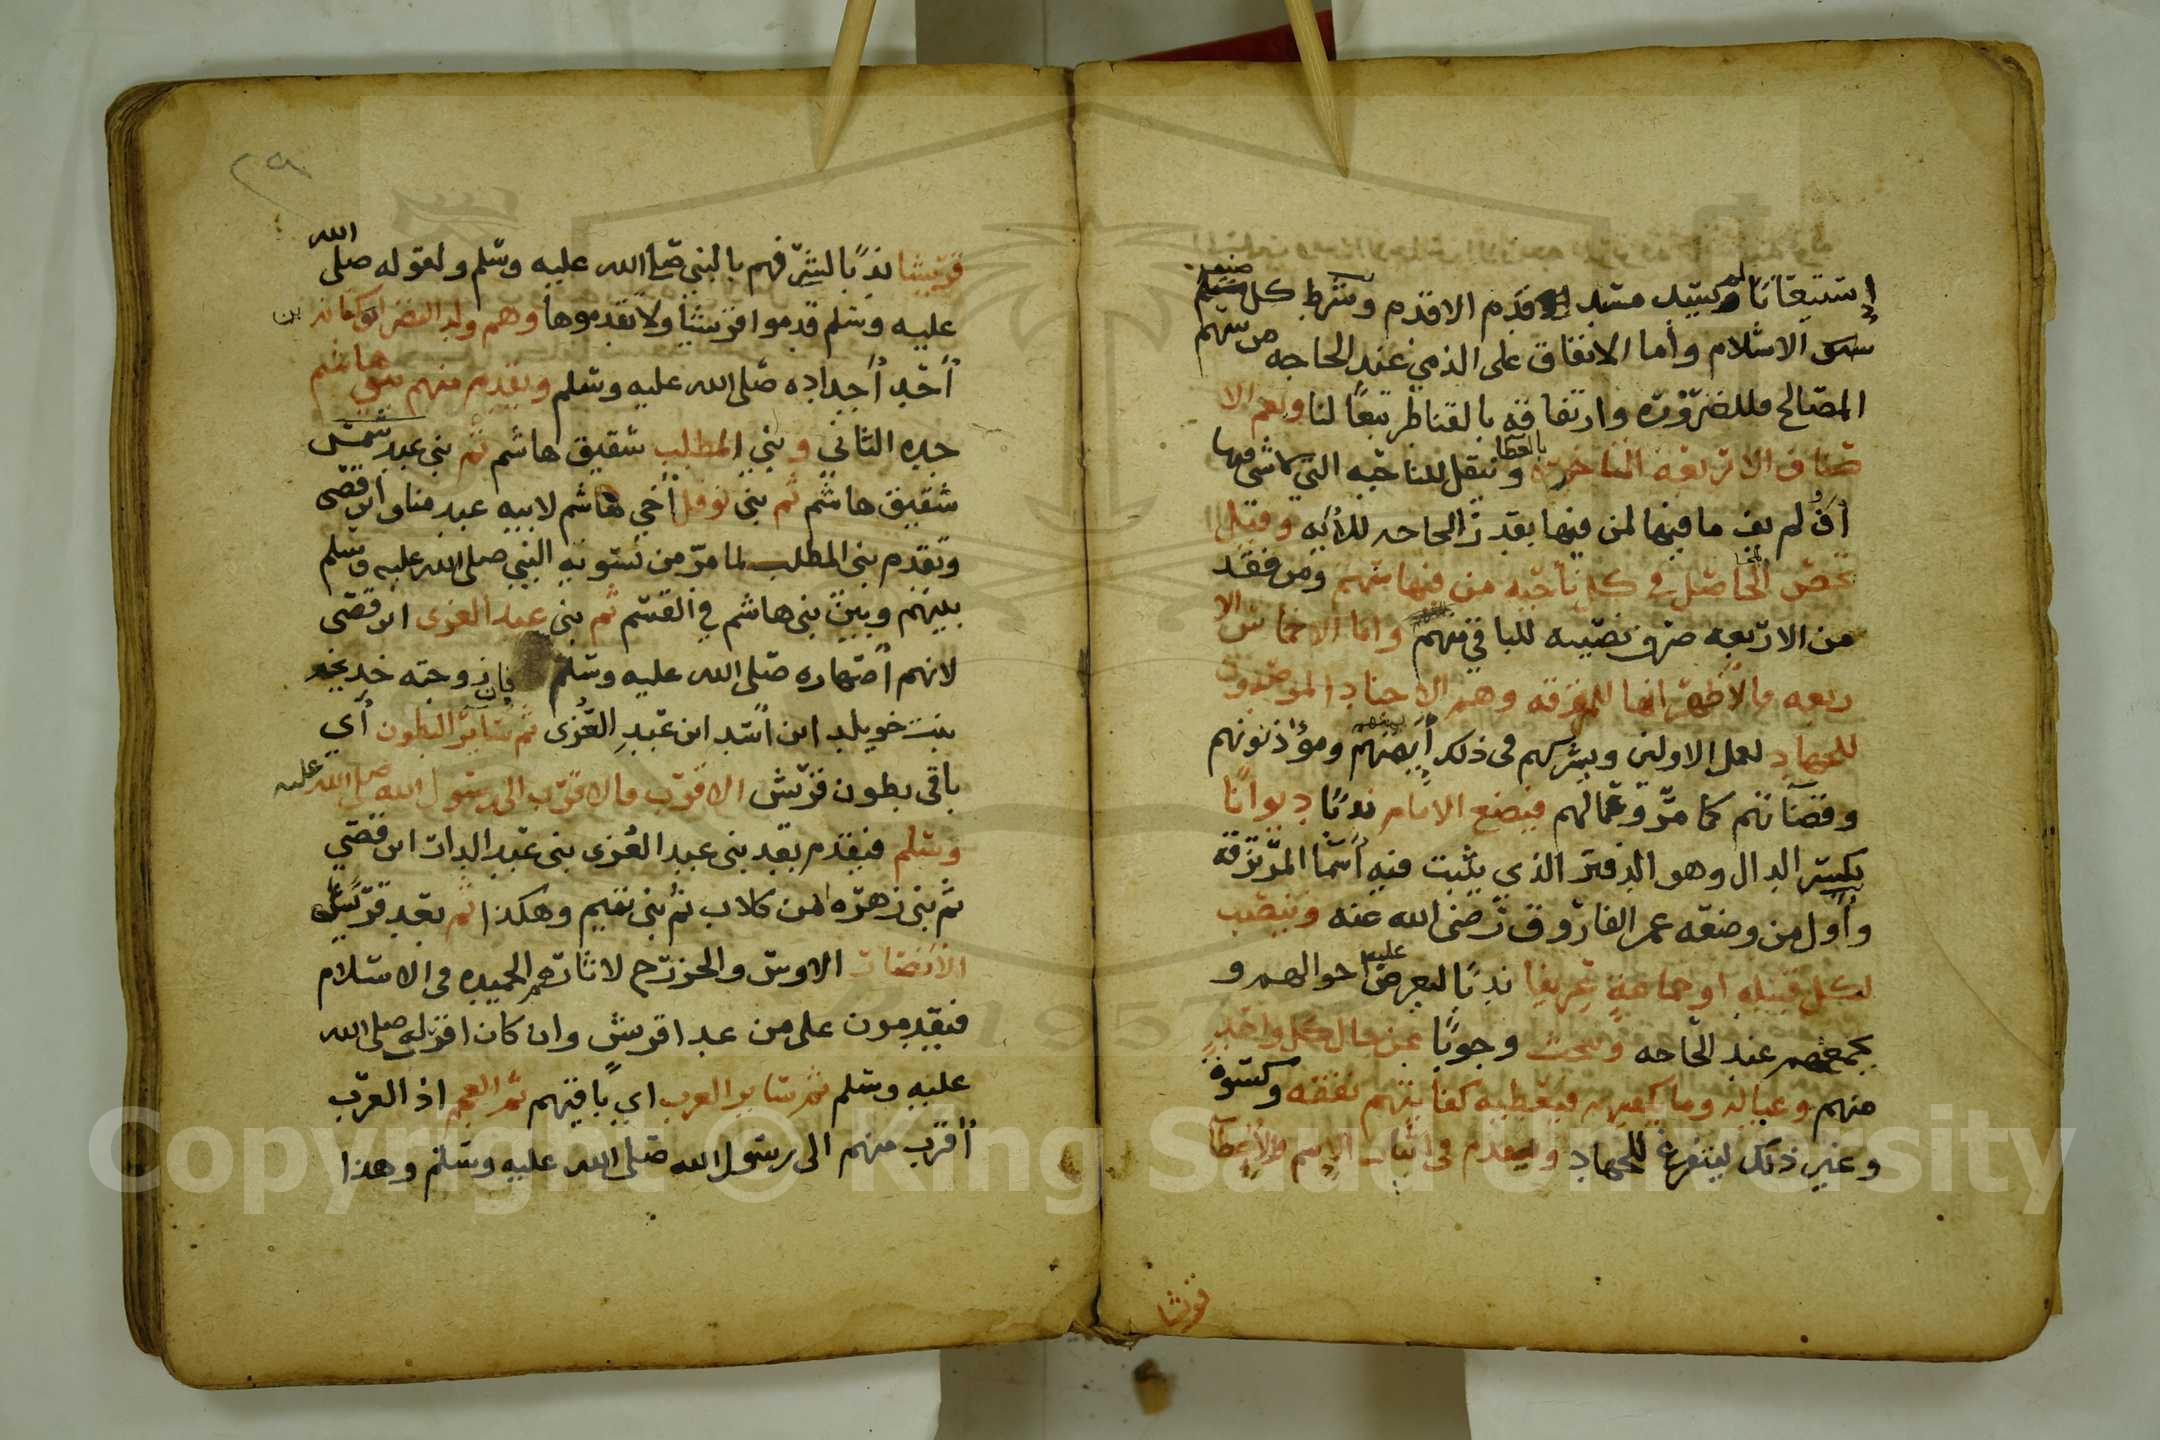 إستيعابًا وكسيد مسد قدم الاقدم وشرط كل منهم
الاسلام وأما الانفاق على الذمي عند الحاجه من سهم
المصالح فللضرورة وارتفاقه بالقناطر تبعًا لنا ويعم الا
صناف الاربعه المتأخرة بالعطا وتنقل لناحيه التي لا شي فيها
أو لم يف ما فيها لمن فيها بقدر الحاجه للآيه وقيل
يخص الحاصل في كل ناحيه من فيها منهم ومن فقد
من الاربعه صرف نصيبه للباقي منهم واما الاخماس الا
ربعه فالأظهر انها للمرتزقه وهم الاجناد المرصدون
للجهاد لعمل الاولين ويشركهم في ذلك أيمتهم ومؤذنونهم
وقضاتهم كما مر وعمالهم فيضع الامام ندبًا ديوانًا
بكسر الدال وهو الدفتر الذي يثبت فيه أسما المرتزقه
وأول من وضعه عمر الفاروق رضى الله عنه وينصب
لكل قبيله او جماعة عريفا ندبًا ليعرض عليه احوالهم و
يجمعهم عند الحاجه ويبحث وجوبًا عن حال كل واحد
منهم وعياله وما يكفيهم فيعطيه كفايتهم نفقه وكسوة
وغير ذلك ليتفرغ للجهاد ويقدم في اثبات الاسم والاعطآ
قريشا
٢٩
قريشا ندبًا لشرفهم بالنبي صلى الله عليه وسلم ولقوله صلى الله
عليه وسلم قدموا قريشا ولا تقدموها وهم ولد النضر بن كنانه
أحد أجداده صلى الله عليه وسلم ويقدم منهم بني هاشم
جده الثاني وبني المطلب شقيق هاشم ثم بني عبد شمس
شقيق هاشم ثم بني نوفل أخي هاشم لابيه عبد مناف ابن قصي
وتقدم بني المطلب لما مر من تسويه النبي صلى الله عليه وسلم
بينهم وبين بني هاشم في القسم ثم بني عبد العزى ابن قصي
لانهم أصهاره صلى الله عليه وسلم فان زوجته خديجه
بنت خويلد ابن أسد ابن عبد العُزى ثم سائر البطون أي
باقي بطون قريش الاقرب فالاقرب الى رسول الله صلى الله عليه
وسلم فيقدم بعد بني عبد العُزى بني عبد الدار ابن قصي
ثم بني زهره ابن كلاب ثم بني تميم وهكذا ثم بعد قريش
الأنصار الاوس والخزرج لاثارهم الحميده في الاسلام
فيقدمون على من عدا قريش وان كان اقرب له صلى الله
عليه وسلم ثم سائر العرب اي باقيهم ثم العجم اذ العرب
أقرب منهم الى رسول الله صلى الله عليه وسلم وهذا
Copyright © King Saud University
1957